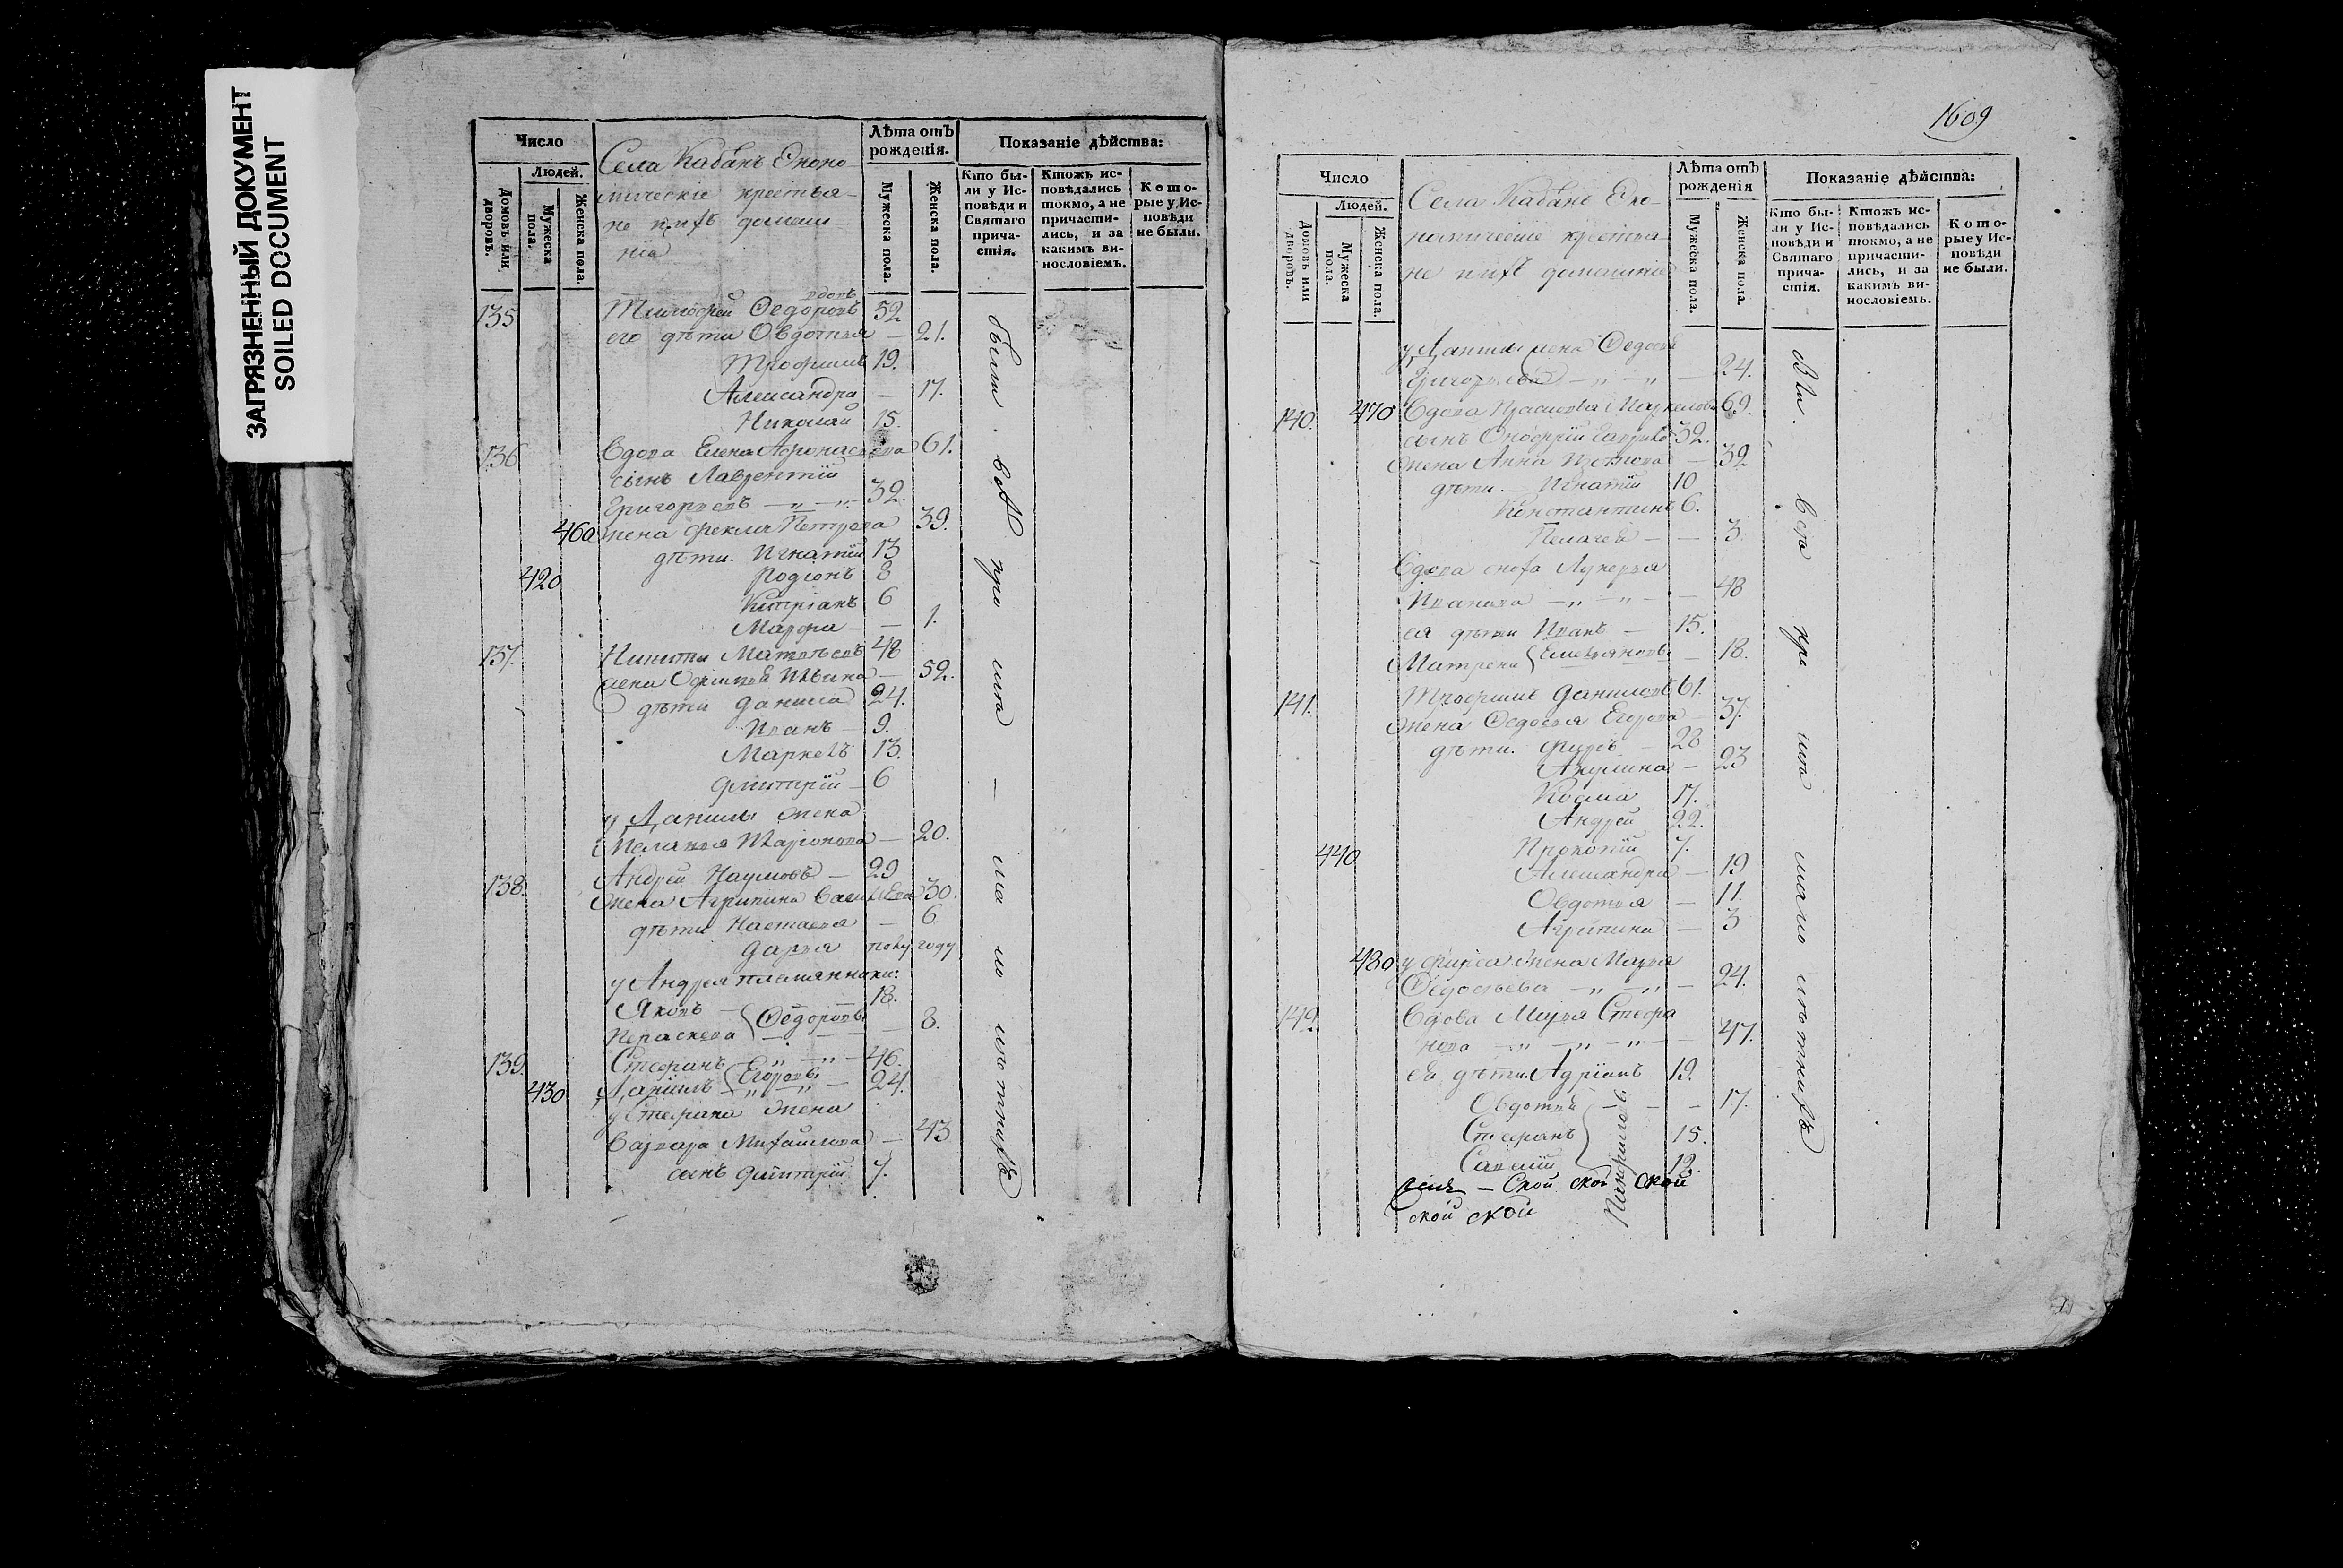 ЗАГРЯЗНЕННЫЙ ДОКУМЕНТ
SOILED DOCUMENT
Число
Людей.
Домовъ или дворовъ.
Мужеска пола.
Женска пола.
Села Кабанъ Эконо
мическіе крестья-
не и ихъ домаш-
нія
Лѣта отъ рожденія.
Мужеска пола.
Женска пола.
Показаніе дѣйства:
Кто бы-
ли у Ис-
повѣди и
Святаго
прича-
стія.
Ктожъ ис-
повѣдались
токмо, а не
причасти-
лись, и за
какимъ ви-
нословіемъ.
Кото-
рые у Ис-
повѣди
не были.
вдовъ
135 Тимофей Федоровъ 52
его дѣти Овдотья — 21.
Трофимъ 19.
Александра — 17.
Николай 15.
136 Вдова Елена Афонасьева 61.
сынъ Лаврентій
Григорьевъ — „ — „ 32.
460 жена Фекла Петрова 39.
дѣти. Игнатій 13
420 Родіонъ 8
Кипріанъ 6
Марфа — — 1.
137. Никита Матвѣевъ 48
жена Офимья Ильина — 52.
дѣти Данила 24.
Иванъ — 9.
Маркелъ 13.
Дмитрій — 6
у Данилы жена
Меланья Иларіонова — 20.
138. Андрей Наумовъ — 29
жена Агрипина Васильева 30.
дѣти Настасья — 6
Дарья полу году
у Андрея племянники:
Яковъ — 18.
Параскева Ѳедоровы — 8.
139. Стефанъ — „ — „ — 46.
430 Даніилъ Егоровы — 24.
у Стефана жена
Варвара Михайлова — 43
сынъ Дмитрій 7.
1609
Число
Людей.
Домовъ или дворовъ.
Мужеска пола.
Женска пола.
Села Кабанъ Эко-
номическіе крестья-
не и ихъ домашніе
Лѣта отъ рожденія
Мужеска пола.
Женска пола.
Показаніе дѣйства:
Кто бы-
ли у Ис-
повѣди и
Святаго
прича-
стія.
Ктожъ ис-
повѣдались
токмо, а не
причасти-
лись, и за
какимъ ви-
нословіемъ.
Кото-
рые у Ис-
повѣди
не были.
у Данилы жена Федосья
Григорьева — „ — „ — 24.
140. 470 Вдова Прасковья Маркелова 69.
сынъ Онофрій 32.
жена Анна — 32
дѣти. — Игнатій 10
Константинъ 6.
Пелагея — — 3
Вдова сноха Лукерья
Иванова — „ — „ — — 48
ея дѣти Иванъ — 15.
Матрена Емельяновы — 18.
141. Трофимъ Даниловъ 61.
жена Федосья Егорова — 37.
дѣти. Фирсъ — 28
Акулина — 23
Косма 17.
Андрей 22.
440 Прокопій 7.
Александра — 19
Овдотья — 11.
Агрипина — 3
480 у Фирса жена Марья
Федосьева — „ — „ — 24.
142 Вдова Марья Стефа
нова — „ — „ — „ — — 47.
ея дѣти. Адріанъ 19.
Овдотья — — — 17.
Стефанъ 15.
Савелій 12.
Панфиловы
— Ской ской ской
ской ской